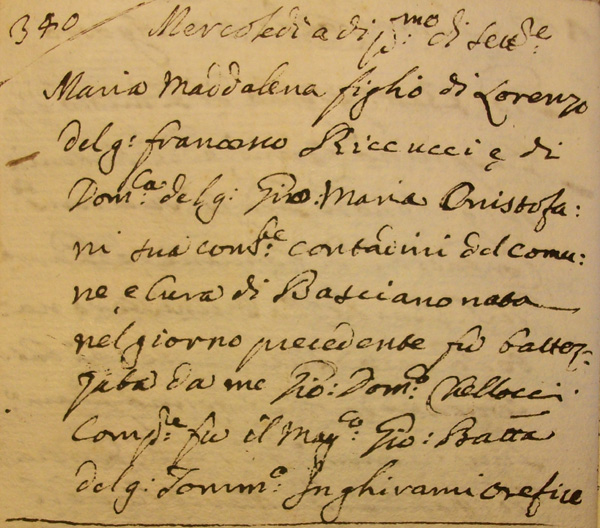 340 Mercoledì a dì p:mo di Sett:e
Maria Maddalena figlio di Lorenzo
del q: Francesco Riccucci e di
Dom:ca del q: Gio: Maria Cristofa:
ni sua cons:te contadini del comu:
ne e Cura di Basciano nata
nel giorno precedente fù battez-
zata da me Gio: Dom:o Vellocci
Comp:e fù il Mag:co Gio: Batta
del q: Tomm:o Inghirami orefice